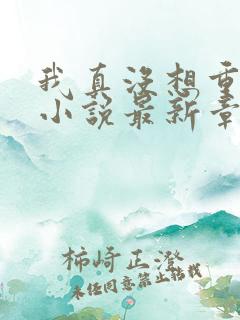 我真没想重
小说最新章
柿崎正澄
未经同意禁止转载